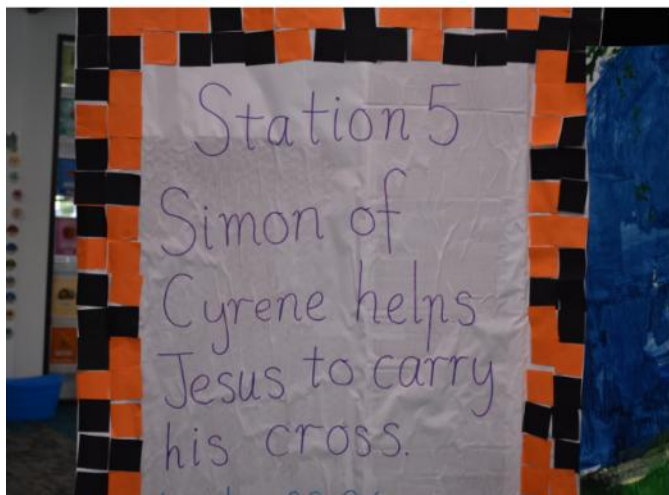 Station 5
Simon of
Cyrene helps
Jesus to carry
his cross.